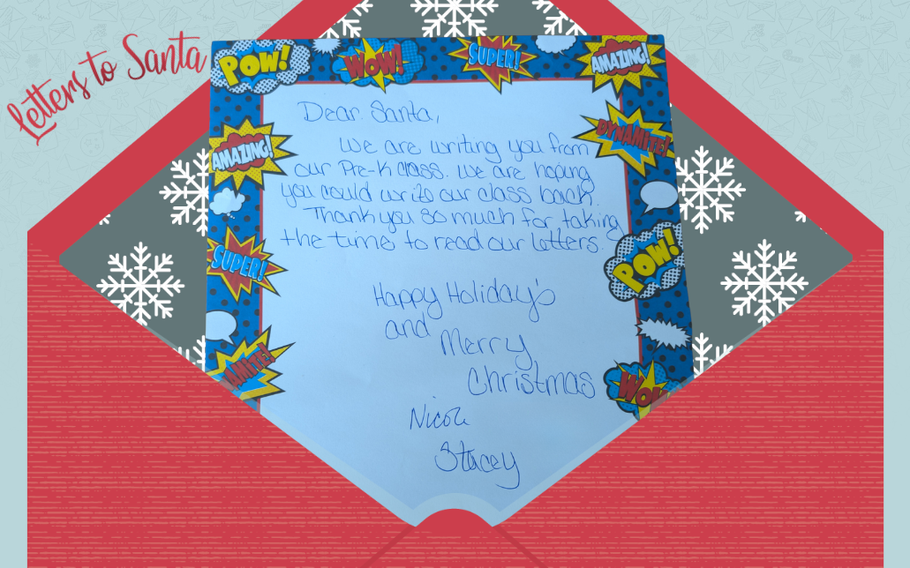 Letters to Santa
POW!
WOW!
SUPER!
AMAZING!
AMAZING!
DYNAMITE!
SUPER!
POW!
NAMITE!
WOW
Dear Santa,
We are writing you from
our Pre-K class. We are hoping
you could write our class back.
Thank you so much for taking
the time to read our letters.
Happy Holiday's
and
Merry
Christmas
Nicole
Stacey